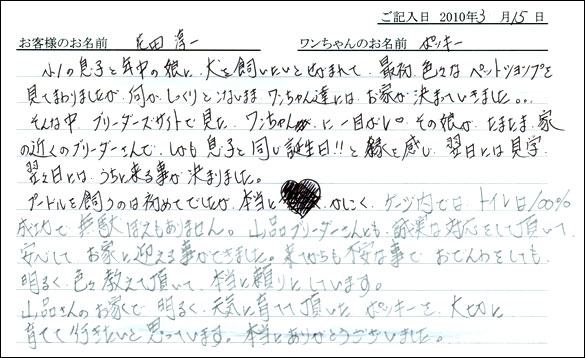 ご記入日 2010年3月15日
お客様のお名前 花田 淳一 ワンちゃんのお名前 ポッキー
小1の息子と年中の娘に、犬を飼いたいとせがまれて、最初、色々な ペットショップを
見てまわりましたが、何か、しっくりとこないまま ワンちゃん達には お家が 決まっていきました。。
そんな中 ブリーダーズサイトで見た ワンちゃん に一目がに。その娘が、たまたま、家
の近くのブリーダーさんで、しかも 息子と同じ誕生日!!と 縁を感じ、翌日には見学、
翌々日には、うちに来る事が決まりました。
プードルを飼うのは初めてでしたが、本当に かしこく、ケージ内では トイレは100%
成功で 無駄ぼえもありません。山品ブリーダーさんにも、誠実な対応をして頂いて、
安心して お家に迎える事ができました。来てからも 不安な事で おでんわをしても、
明るく、色々教えて頂いて、本当に 頼りにしています。
山品さんのお家で 明るく、元気に育てて頂いた ポッキーを、大切に
育てて行きたいと思っています。本当にありがとうございました。